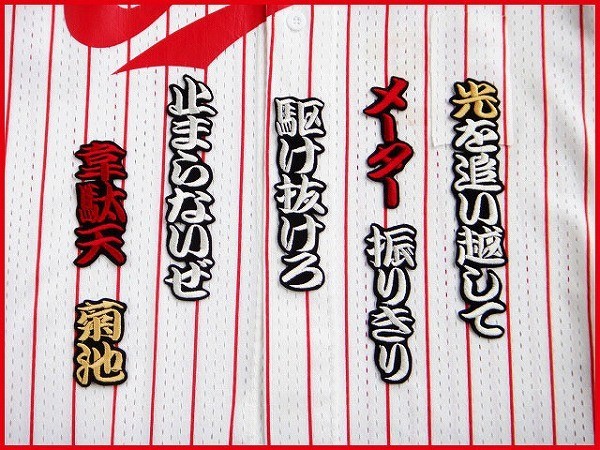 光を追い越して
メーター 振りきり
駆け抜けろ
止まらないぜ
韋駄天 菊池